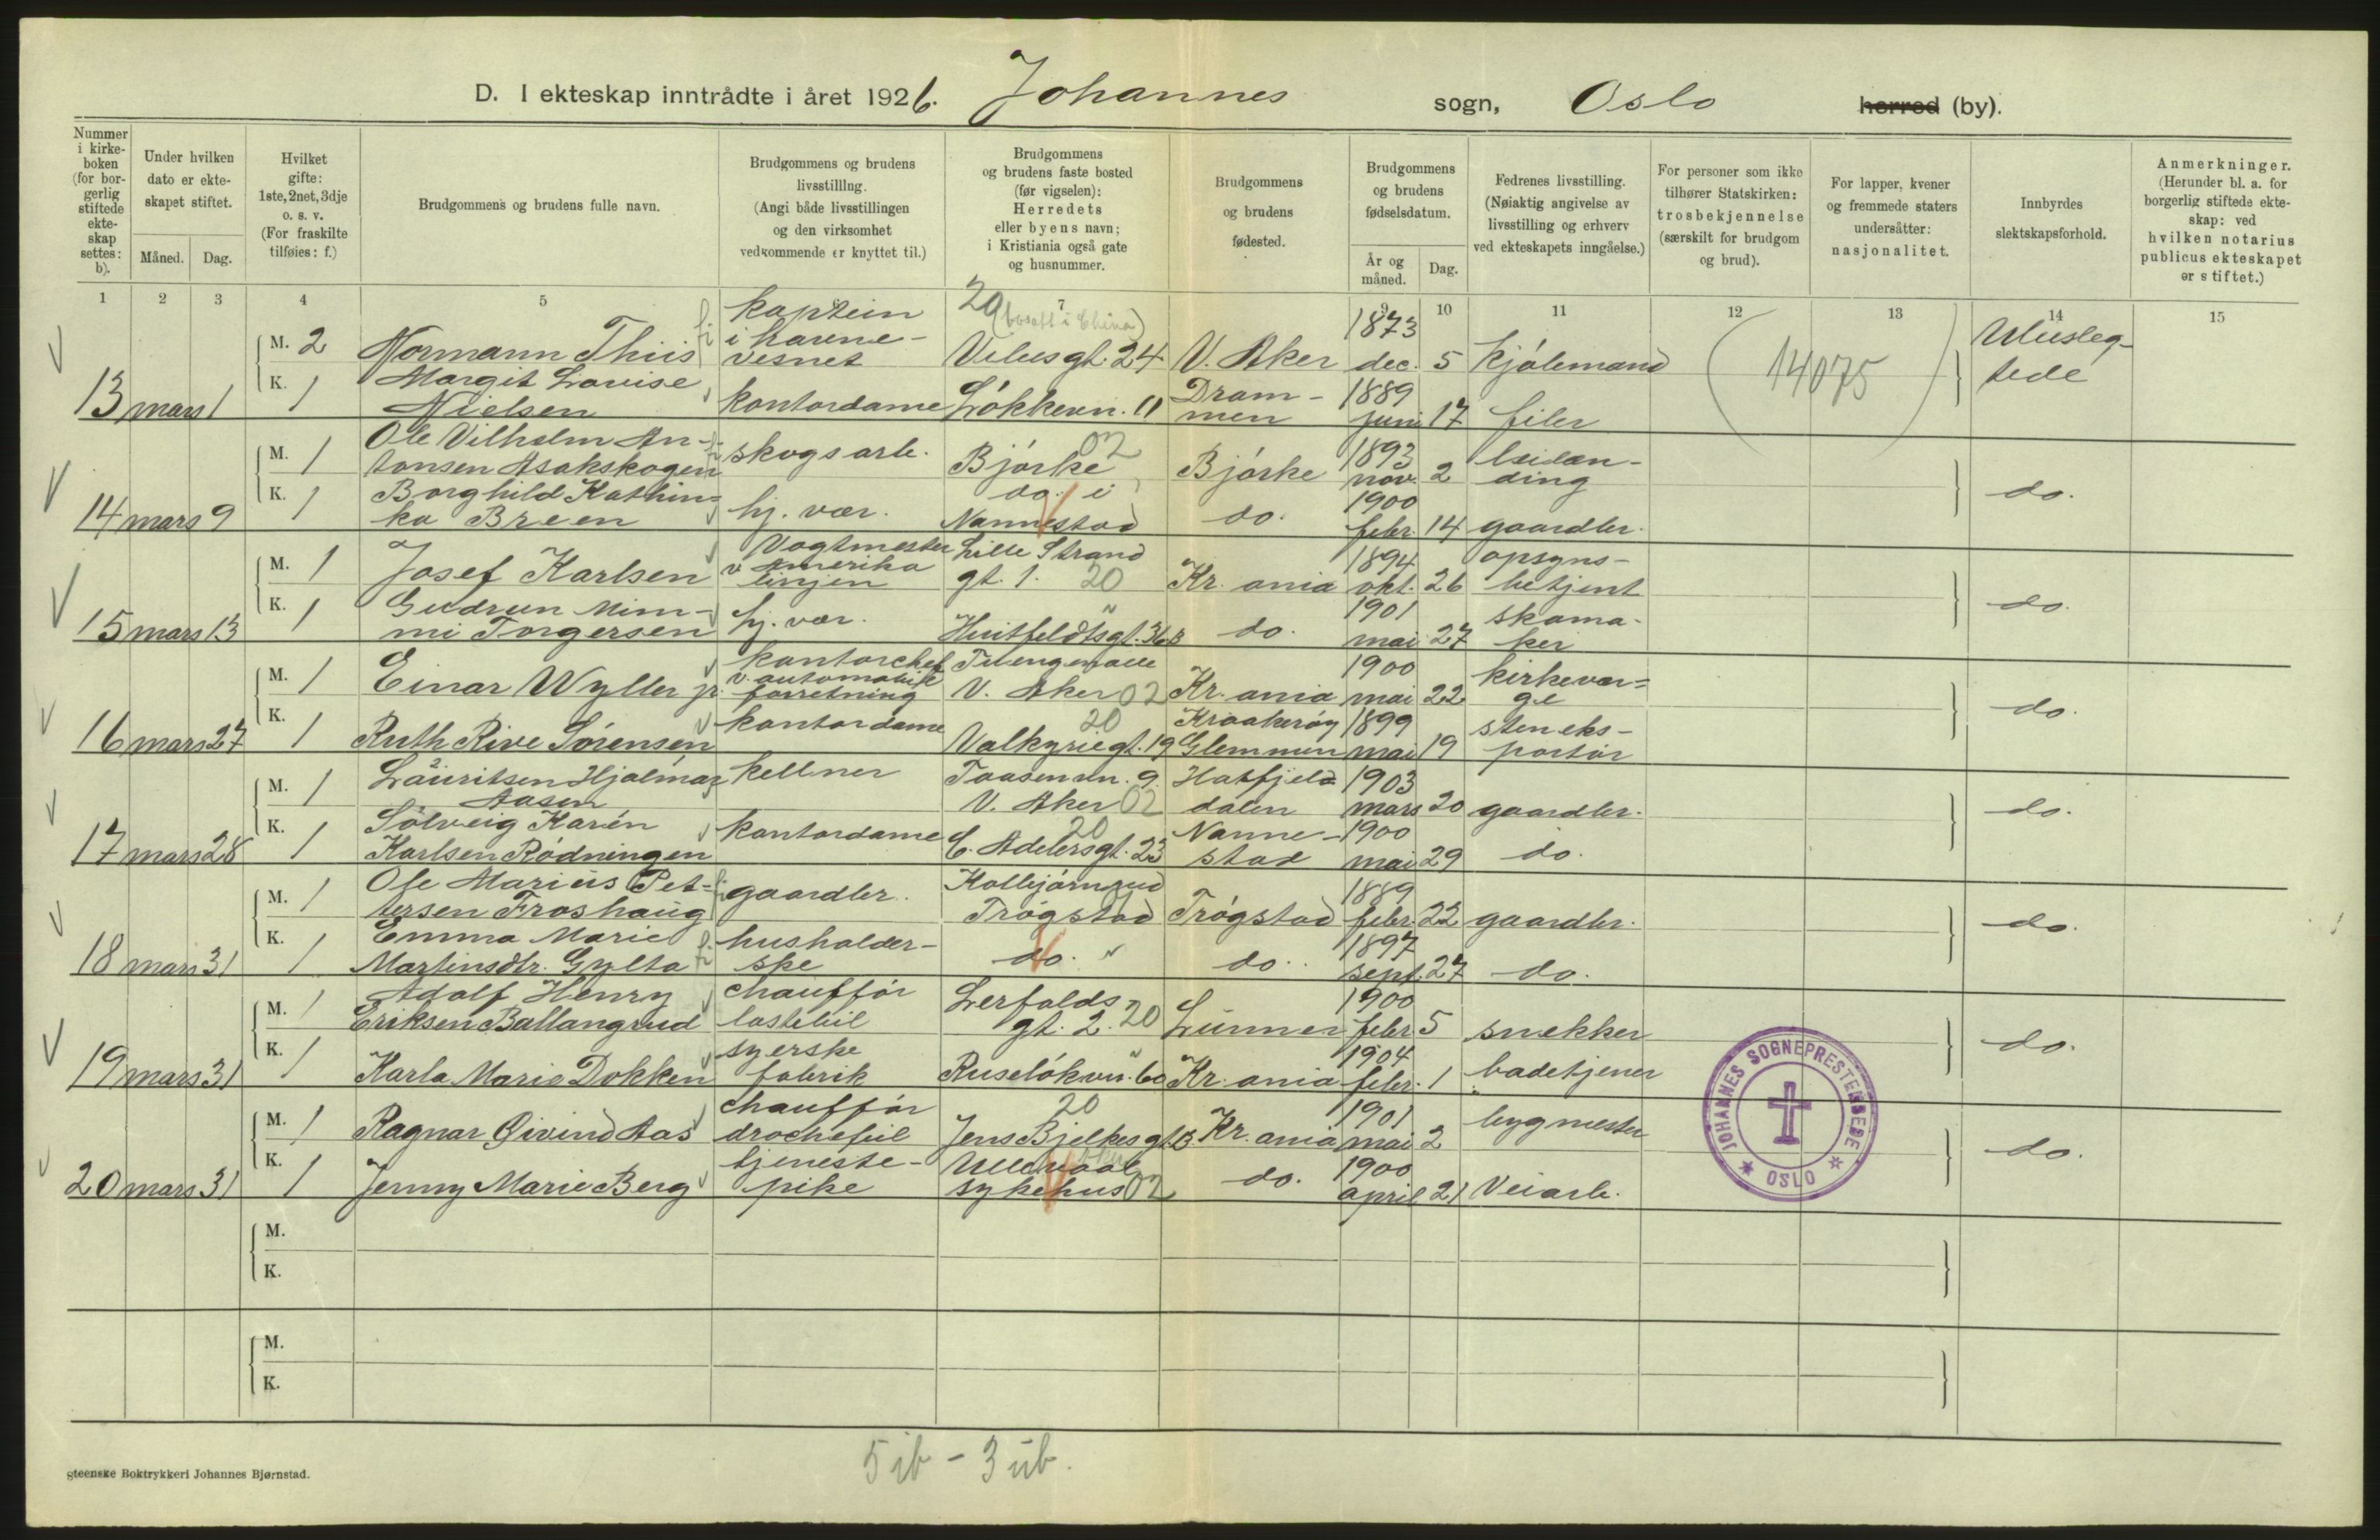 D. I ekteskap inntrådte i året 1926. Johannes sogn, Oslo herred (by).
Nummer i kirke- boken (for bor- gerlig stiftede ekte- skap settes: b).
Under hvilken dato er ekte- skapet stiftet.
Måned. Dag.
Hvilket gifte: 1ste, 2net, 3dje o. s. v. (For fraskilte tilføies: f.)
Brudgommens og brudens fulle navn.
Brudgommens og brudens livsstilling. (Angi både livsstillingen og den virksomhet vedkommende er knyttet til.)
Brudgommens og brudens faste bosted (før vigselen): Herredets eller byens navn; i Kristiania også gate og husnummer.
Brudgommens og brudens fødested.
Brudgommens og brudens fødselsdatum.
År og måned. Dag.
Fedrenes livsstilling. (Nøiaktig angivelse av livsstilling og erhverv ved ekteskapets inngåelse.)
For personer som ikke tilhører Statskirken: trosbekjennelse (særskilt for brudgom og brud).
For lapper, kvener og fremmede staters undersåtter: nasjonalitet.
Innbyrdes slektskapsforhold.
Anmerkninger. (Herunder bl. a. for borgerlig stiftede ekte- skap: ved hvilken notarius publicus ekteskapet er stiftet.)
1 2 3 4 5 7 9 10 11 12 13 14 15
13 mars 1
M. 2 Normann Thiis kaptein i havne- vesnet 20 (bosatt i China) Vibesgt. 24 V. Aker 1873 dec. 5 Kjølemand (14075) Ubesleg- tede
K. 1 Margit Lovise Nielsen kontordame Løkkevn. 11 Dram- men 1889 juni 17 filer
14 mars 9
M. 1 Ole Vilhelm An- tonsen Asakskogen skogsarb. Bjørke 02 Bjørke 1893 nov. 2 leilæn- ding do.
K. 1 Borghild Kathin- ka Breen hj. vær. do. i Nannestad do. 1900 febr. 14 gaardbr.
15 mars 13
M. 1 Josef Karlsen Vogtmester v Amerika linjen Lille Strand gt. 1. 20 Kr. ania 1894 okt. 26 opsyns- betjent do.
K. 1 Gudrun Mim- mi Torgersen hj. vær. Huitfeldtsgt. 36B do. 1901 mai 27 skoma- ker
16 mars 27
M. 1 Einar Wyller jr. kontorchef v. automobil forretning V. Aker 02 Kr. ania 1900 mai 22 kirkevær- ge do.
K. 1 Ruth Rive Sørensen kontordame 20 Valkyriegt. 19 Kraakerøy Glemmen 1899 mai 19 steneks- portør
17 mars 28
M. 1 Lauritsen Hjalmar Aasen kellner Taasenvn. 9. V. Aker 02 Hatfjeld dalen 1903 mars 20 gaardbr. do.
K. 1 Solveig Karén Karlsen Rødningen kontordame 20 C. Adelersgt. 23 Nanne- stad 1900 mai 29 do.
18 mars 31
M. 1 Ole Marius Pet- tersen Froshaug gaardbr. Kolbjørnsrud Trøgstad Trøgstad 1889 febr. 22 gaardbr. do.
K. 1 Emma Marie Martinsdtr. Gylta husholder- ske do. do. 1897 sept. 27 do.
19 mars 31
M. 1 Adolf Henry Eriksen Ballangrud chauffør lastebil Lerfalds gt. 2. 20 Lunner 1900 febr 5 snekker do.
K. 1 Karla Marie Dokken syerske fabrik Ruseløkvn. 60 Kr. ania 1904 febr. 1 badetjener
20 mars 31
M. 1 Ragnar Øivind Aas chauffør drochebil 20 Jens Bjelkesgt. Kr. ania 1901 mai 2 bygmester do.
K. 1 Jenny Marie Berg tjeneste- pike Ullevaal sykehus 02 do. 1900 april 21 Veiarb.
M.
K.
M.
K.
JOHANNES SOGNEPRESTEMBEDE
OSLO
5 ib - 3 ub.
Steenske Boktrykkeri Johannes Bjørnstad.